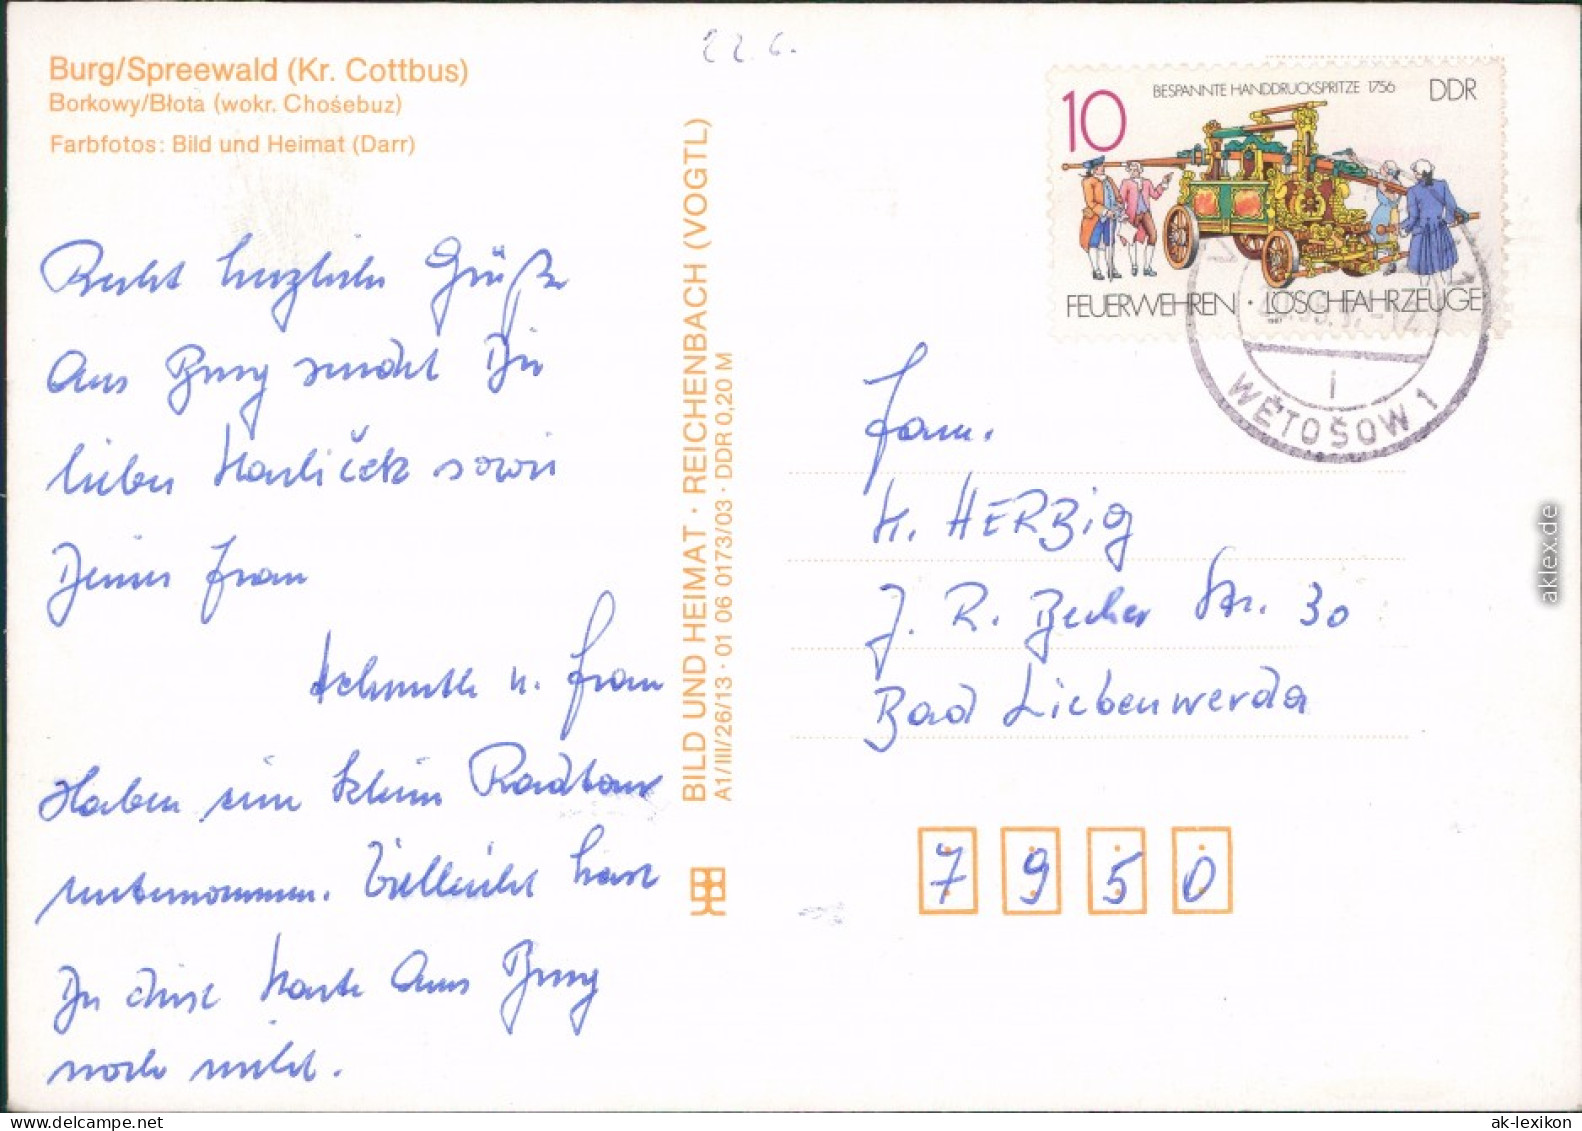 Burg/Spreewald (Kr. Cottbus)
Borkowy/Błota (wokr. Chośebuz)
Farbfotos: Bild und Heimat (Darr)
22.6.
10
BESPANNTE HANDDRUCKSPRITZE 1756
DDR
FEUERWEHREN · LÖSCHFAHRZEUGE
WĚTOŠOW 1
i
Recht herzliche Grüße
Aus Burg sendet Dir
lieber Karliček sowie
Deiner Frau
Helmuth u. Frau
Haben eine kleine Radtour
unternommen. Vielleicht hast
Du diese Karte Aus Burg
noch nicht.
BILD UND HEIMAT · REICHENBACH (VOGTL)
A1/III/26/13 · 01 06 0173/03 · DDR 0,20 M
Fam.
K. HERZig
J. R. Becher Str. 30
Bad Liebenwerda
7950
aklex.de
ak-lexikon